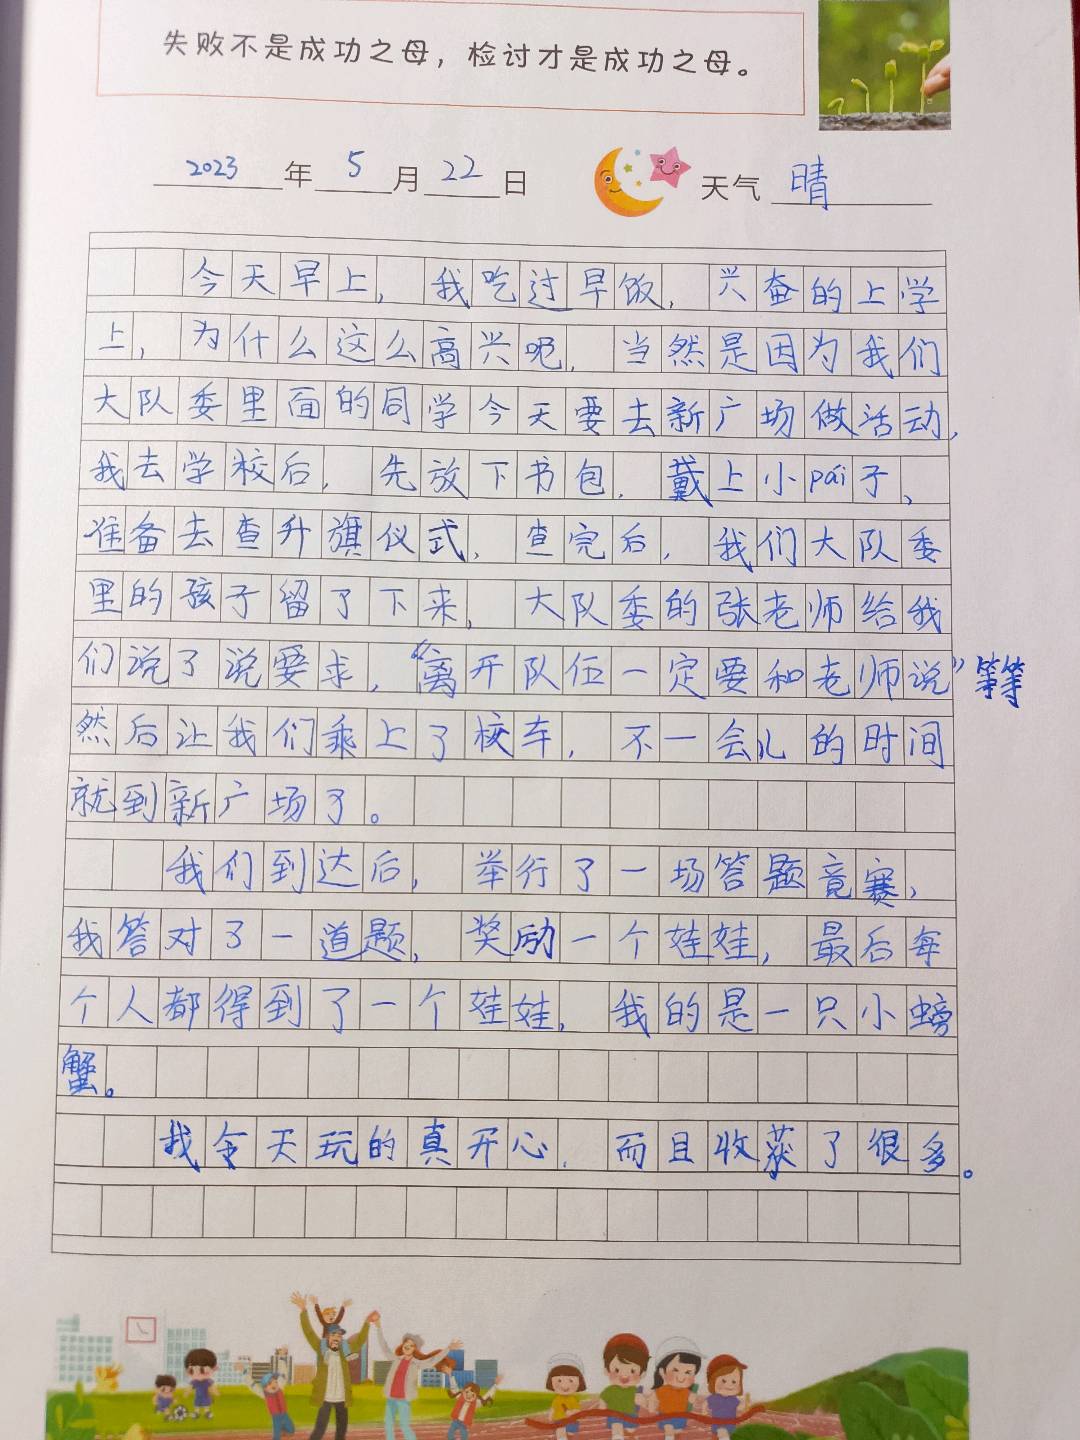 失败不是成功之母，检讨才是成功之母。
2023年5月22日 天气 晴
今天早上，我吃过早饭，兴奋的上学
上，为什么这么高兴呢，当然是因为我们
大队委里面的同学今天要去新广场做活动，
我去学校后，先放下书包，戴上小pái子、
准备去查升旗仪式，查完后，我们大队委
里的孩子留了下来，大队委的张老师给我
们说了说要求，“离开队伍一定要和老师说”等等
然后让我们乘上了校车，不一会儿的时间
就到新广场了。
我们到达后，举行了一场答题竟赛，
我答对了一道题，奖励一个娃娃，最后每
个人都得到了一个娃娃，我的是一只小螃
蟹。
我今天玩的真开心，而且收获了很多。